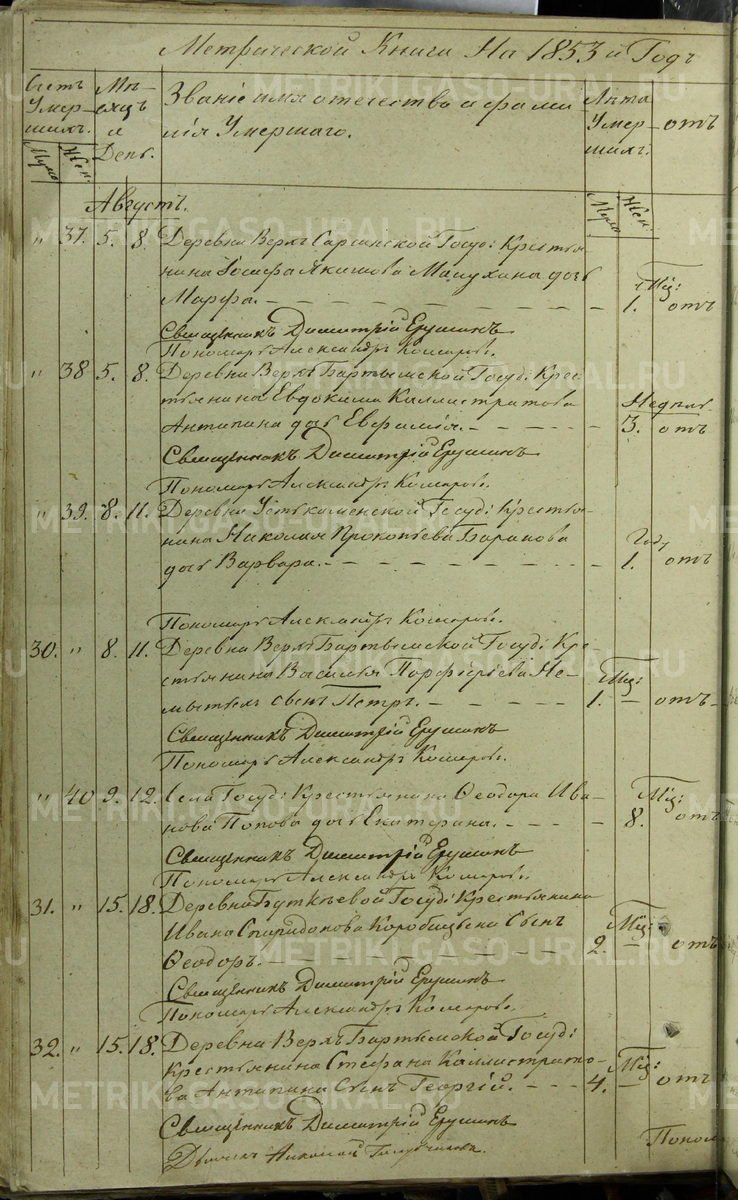 Метрической Книги На 1853й Годъ
Счетъ Умершихъ. Мѣсяцъ и День. Званіе имя отечество и фамилія Умершаго. Лѣта Умершихъ. отъ
Муж. Жен. Муж. Жен.
Августъ.
" 37. 5. 8. Деревни Верхъ Саргинской Госуд: Крестья-
нина Іосифа Акимова дочь Мѣс:
Марѳа. 1. отъ
Священникъ Димитрій Ерушинъ
Пономарь Александръ Комаровъ.
" 38 5. 8. Деревни Верхъ Бартымской Госуд: Крес-
тьянина Евдокима Каллистратова Недѣль
Антипина дочь Евфимія. 3. отъ
Священникъ Димитрій Ерушинъ
Пономарь Александръ Комаровъ.
" 39. 8. 11. Деревни Госуд: Крестья-
нина Николая Прокопьева Баранова Годъ
дочь Варвара. 1. отъ
Пономарь Александръ Комаровъ.
30. " 8. 11. Деревни Верхъ Бартымской Госуд: Кре-
стьянина Василья Порфирьева Не- Мѣс:
сынъ Петръ. 1. отъ
Священникъ Димитрій Ерушинъ
Пономарь Александръ Комаровъ.
" 40 9. 12. Села Госуд: Крестьянина Ѳеодора Ива- Мѣс:
нова Попова дочь Екатерина. 8. отъ
Священникъ Димитрій Ерушинъ
Пономарь Александръ Комаровъ.
31. " 15. 18. Деревни Госуд: Крестьянина
Ивана Спиридонова Коробицына Сынъ Мѣс:
Ѳеодоръ. 2 отъ
Священникъ Димитрій Ерушинъ
Пономарь Александръ Комаровъ.
32. " 15. 18. Деревни Верхъ Бартымской Госуд:
крестьянина Стефана Каллистрато- Мѣс:
ва Антипина Сынъ Георгій. 4. отъ
Священникъ Димитрій Ерушинъ
Николай
Поном
METRIKI.GASO-URAL.RU